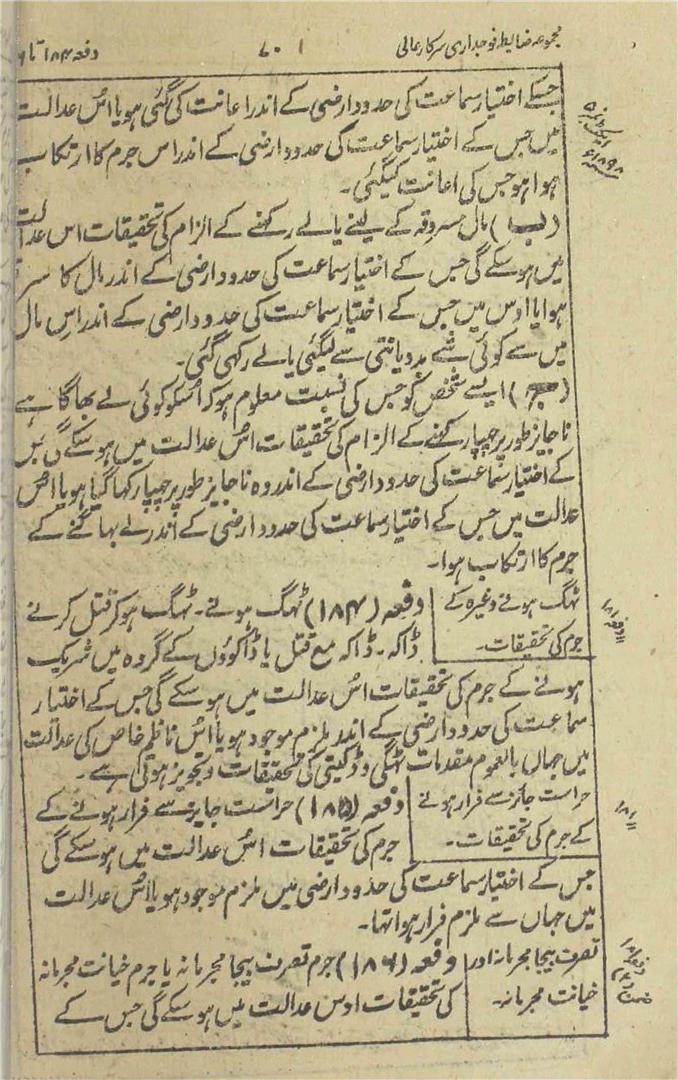 مجموعہ ضابطہ فوجداری سرکار عالی
۷۰۱
دفعہ ۱۸۴ تا ۶
جسکے اختیار سماعت کی حدود ارضی کے اندر اعانت کی گئی ہو یا اُس عدالت
میں جس کے اختیار سماعت کی حدود ارضی کے اندر اس جرم کا ارتکاب
ہوا ہو جس کی اعانت کیگئی۔
(ب) مال مسروقہ کے لینے یا لے رکھنے کے الزام کی تحقیقات اس عدالت
میں ہو سکے گی جس کے اختیار سماعت کی حدود ارضی کے اندر مال کا سرقہ
ہوا یا اوس میں جس کے اختیار سماعت کی حدود ارضی کے اندر اس مال
میں سے کوئی شے بددیانتی سے لیگئی یا لے رکھی گئی۔
(ج) ایسے شخص کو جس کی نسبت معلوم ہو کہ اُسکو کوئی لے بھاگا ہے
ناجایز طور پر چھپا رکھنے کے الزام کی تحقیقات اُس عدالت میں ہو سکے گی جس
کے اختیار سماعت کی حدود ارضی کے اندر وہ ناجایز طور پر چھپا رکھا گیا ہو یا اُس
عدالت میں جس کے اختیار سماعت کی حدود ارضی کے اندر لے بھاگنے کے
جرم کا ارتکاب ہوا۔
ٹہگ ہونے وغیرہ کے
جرم کی تحقیقات۔
دفعہ (۱۸۴) ٹہگ ہونے۔ ٹہگ ہو کر قتل کرنے
ڈاکہ۔ ڈاکہ مع قتل یا ڈاکوؤں کے گروہ میں شریک
ہونے کے جرم کی تحقیقات اُس عدالت میں ہو سکے گی جس کے اختیار
سماعت کی حدود ارضی کے اندر ملزم موجود ہو یا اُس ناظم خاص کی عدالت
میں جہاں بالعموم مقدمات ٹہگی و ڈکیتی کی تحقیقات و تجویز ہوتی ہے۔
حراست جائز سے فرار ہونے
کے جرم کی تحقیقات۔
دفعہ (۱۸۵) حراست جایز سے فرار ہونے کے
جرم کی تحقیقات اُس عدالت میں ہو سکے گی
جس کے اختیار سماعت کی حدود ارضی میں ملزم موجود ہو یا اُس عدالت
میں جہاں سے ملزم فرار ہوا تہا۔
تصرف بیجا مجرمانہ اور
خیانت مجرمانہ۔
دفعہ (۱۸۶) جرم تصرف بیجا مجرمانہ یا جرم خیانت مجرمانہ
کی تحقیقات اوس عدالت میں ہو سکے گی جس کے